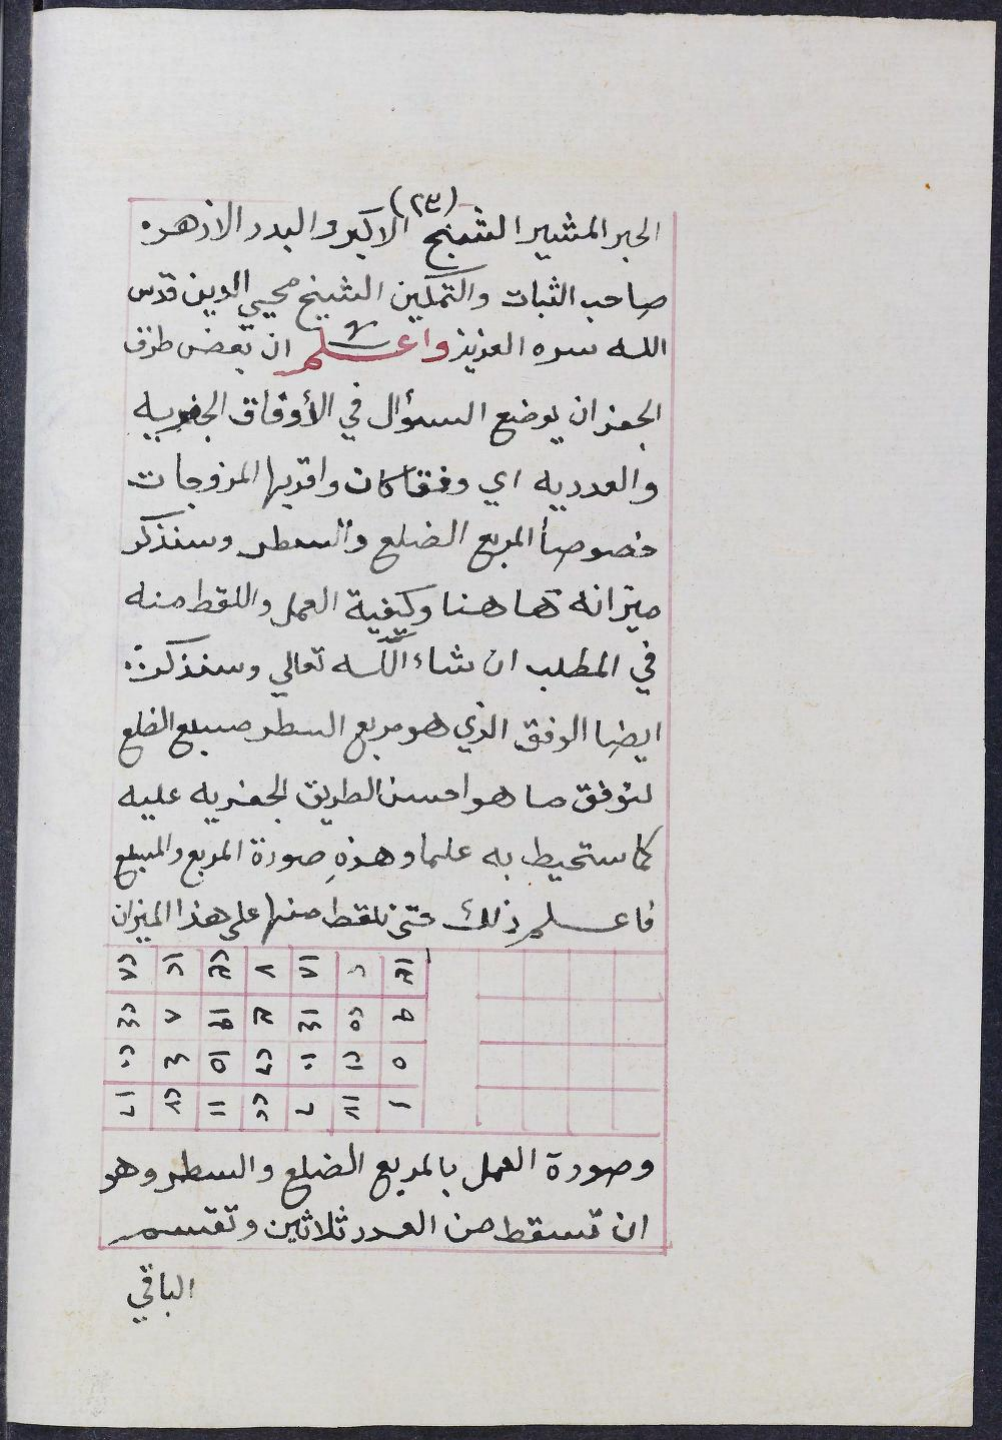 (٢٣)
الحبر المشير الشيخ الاكبر والبدر الازهر
صاحب الثبات والتمكين الشيخ محيي الدين قدس
الله سره العزيز واعلم ان بعض طرق
الجفر ان يوضع السؤال في الأوفاق الجفريه
والعدديه اي وفقا كان واقربها المزوجات
خصوصاً المربع الضلع والسطر وسنذكر
ميزانه هاهنا وكيفية العمل واللقط منه
في المطلب ان شاء الله تعالي وسنذكر
ايضا الوفق الذي هو مربع السطر مسبع الضلع
لتوفق ما هو احسن الطريق الجفريه عليه
كما ستحيط به علما وهذه صورة المربع والمسبع
فاعلم ذلك حتى نلقط منها على هذا الميزان
وصورة العمل بالمربع الضلع والسطر وهو
ان تسقط من العدد ثلاثين وتقسم
الباقي